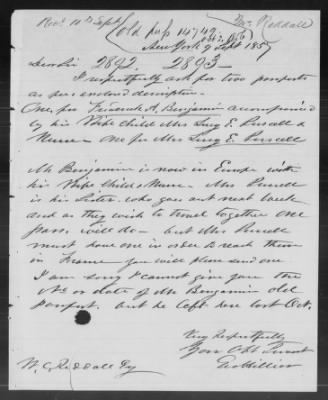 Recd 10th Sept
Wm Reddall
Old pass 14742
New York 9 Sept 185
Dear Sir 2892. 2893
I respectfully ask for two passports
as per enclosed description.
One for Frederick A. Benjamin accompanied
by his Wife Child Mrs Lucy E. Pursall &
Nurse - One for Mrs Lucy E. Pursall
Mr Benjamin is now in Europe with
his Wife Child & Nurse - Mrs Pursall
is his Sister. who goes out next week
and as they wish to travel together one
pass. will do - but Mrs Pursall
must have one in order to reach them
in France you will please send one
I am sorry I cannot give you the
No or date of Mr Benjamin old
passport. but he left here last Oct.
Very Respectfully
Your Obt Servant
W. C. Reddall Esq